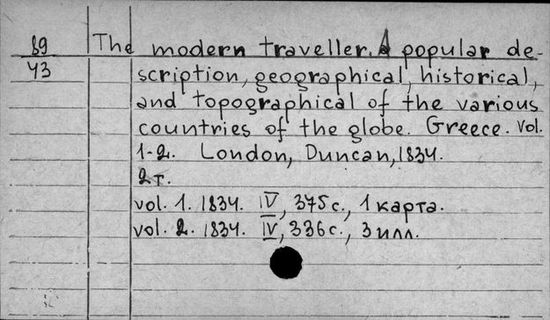 89 The modern traveller. A popular de-
43 scription, geographical, historical,
and topographical of the various
countries of the globe. Greece. Vol.
1-2. London, Duncan, 1834.
2 т.
vol. 1. 1834. IV, 375 с., 1 карта.
vol. 2. 1834. IV, 336 с., 3 илл.